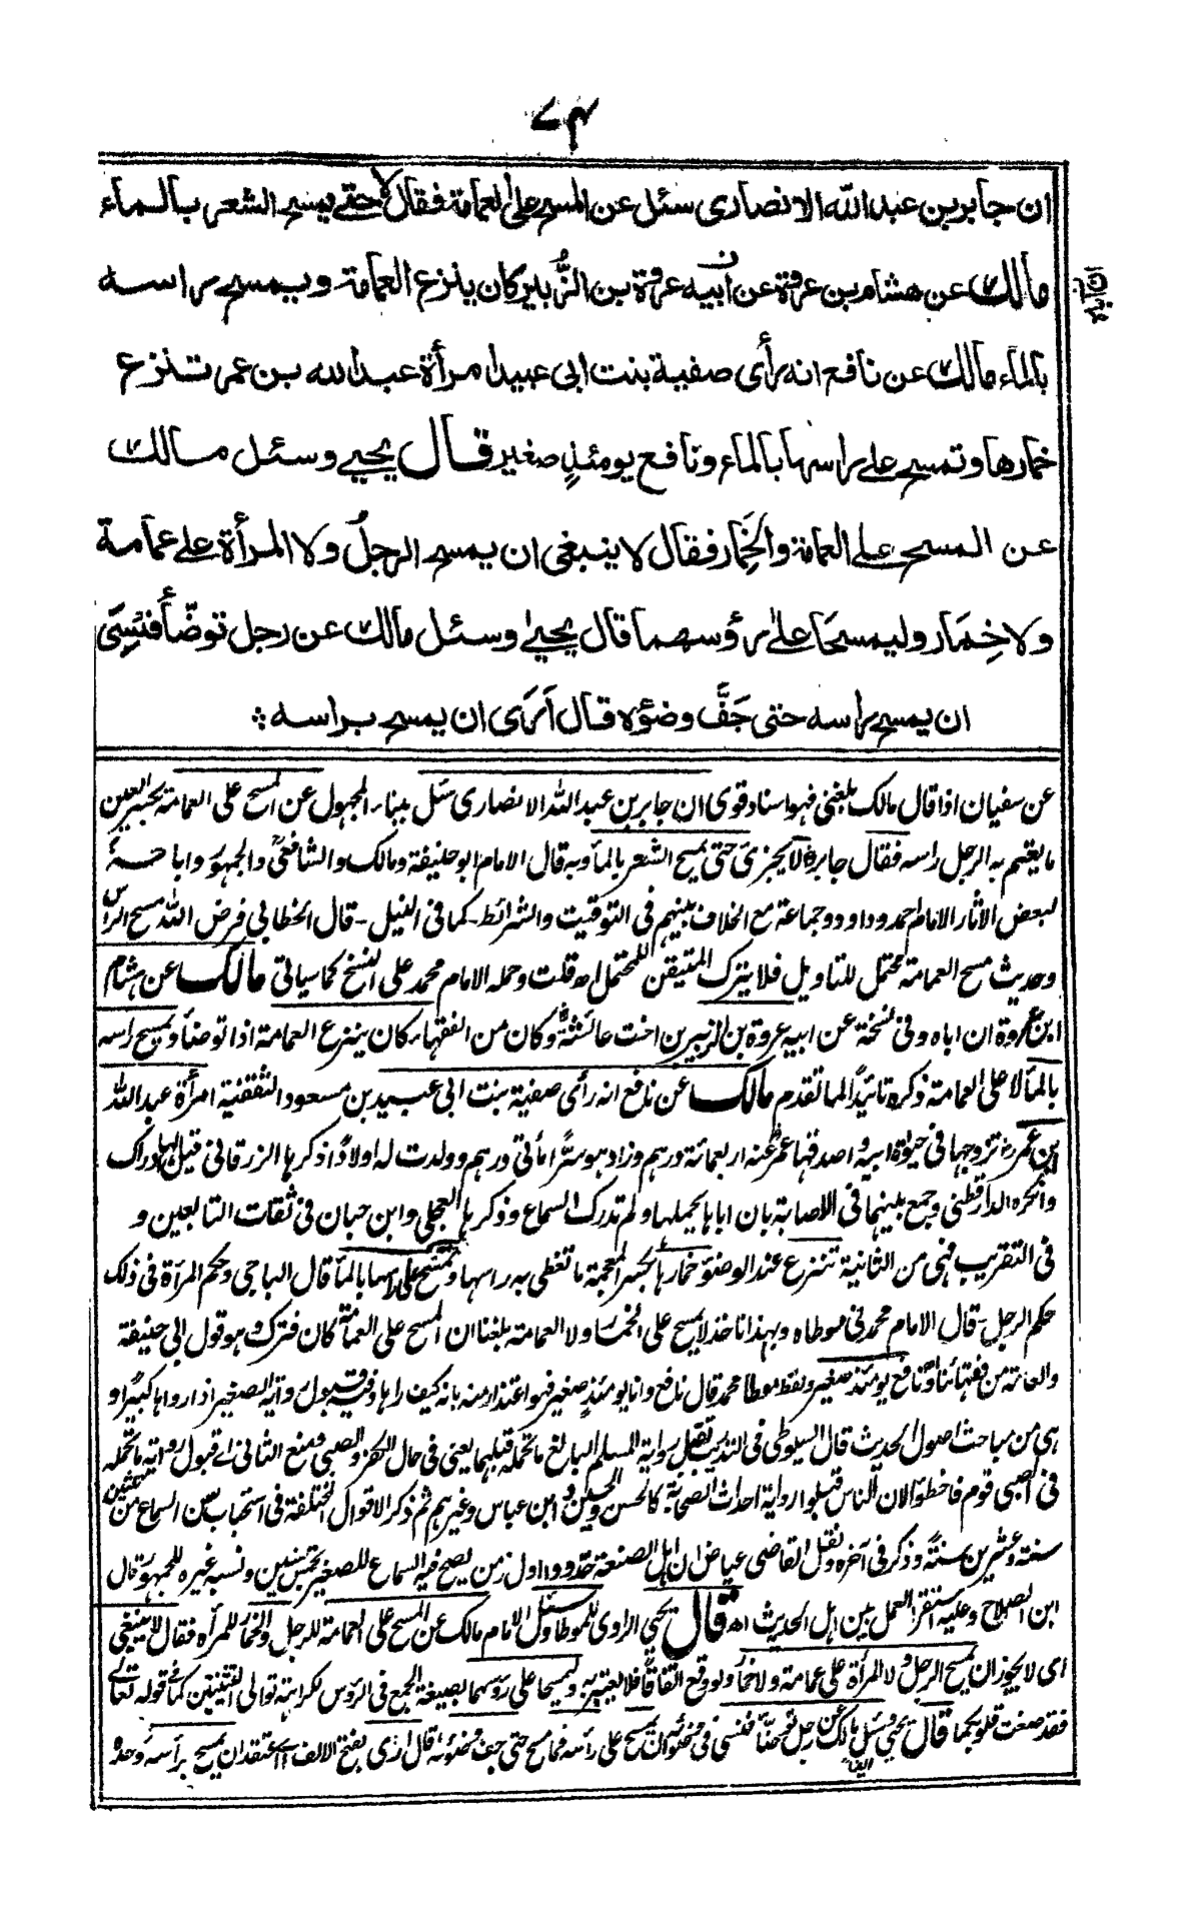 ٧٤
ان جابر بن عبد الله الانصاري سئل عن المسح على العمامة فقال لا حتى يمسح الشعر بالماء
مالك عن هشام بن عروة عن أبيه عروة بن الزُّبير كان ينزع العمامة ويمسح راسه
بالماء مالك عن نافع انه رأى صفية بنت ابي عبيد امرأة عبد الله بن عمر تنزع
خمارها وتمسح على راسها بالماء ونافع يومئذٍ صغير قال يحيى وسئل مالك
عن المسح على العمامة والخِمَار فقال لا ينبغي ان يمسح الرجلُ ولا المرأة على عمامة
ولا خِمَار وليمسحَا على رؤسهما قال يحيى وسئل مالك عن رجل توضّأ فنَسِىَ
ان يمسح براسه حتى جَفَّ وضوُه قال اَرَى ان يمسح براسه
عن سفيان اذا قال مالك بلغني فهو اسناد قوي ان جابر بن عبد الله الانصاري سئل ببناء المجهول عن المسح على العمامة بكسر العين
ما يعتم به الرجل راسه فقال جابر لا يجزئ حتى يمسح الشعر بالماء وبه قال الامام ابو حنيفة ومالك والشافعي والجمهور واباحه
لبعض الآثار الامام احمد وداود وجماعة مع الخلاف بينهم في التوقيت والشرائط - كما في النيل - قال الخطابي فرض الله مسح الراس
وحديث مسح العمامة محتمل للتاويل فلا يترك المتيقن للمحتمل اه قلت وحمله الامام محمد على النسخ كما سياتي مالك عن هشام
ابن عروة ان اباه وفي نسخة عن ابيه عروة بن الزبير بن اخت عائشة وكان من الفقهاء كان ينزع العمامة اذا توضأ ويمسح راسه
بالماء لا على العمامة ذكره تائيدًا لما تقدم مالك عن نافع انه رأى صفية بنت ابي عبيد بن مسعود الثقفية امرأة عبد الله
بن عمر تزوجها في حيوة ابيه واصدقها عمر عنه اربعمائة درهم وزاد هو سرًّا مأتي درهم وولدت له اولادًا ذكرها الزرقاني قيل لها ادراك
وانكره الدارقطني وجمع بينهما في الاصابة بان اباها يحملها ولم تدرك السماع وذكرها العجلي وابن حبان في ثقات التابعين و
في التقريب فهي من الثانية تنزع عند الوضوء خمارها بكسر المعجمة ما تغطى به راسها وتمسح على راسها بالماء قال الباجي وحكم المرأة في ذلك
حكم الرجل - قال الامام محمد في موطاه وبهذا ناخذ لا يمسح على الخمار ولا العمامة بلغنا ان المسح على العمامة كان فترك وهو قول ابي حنيفة
والعامة من فقهائنا ونافع يومئذ صغير ولفظ موطا محمد قال نافع وانا يومئذٍ صغير فهو اعتذار منه بانه كيف راها وفيه قبول رواية الصغير اذا رواها كبيرًا و
هي من مباحث اصول الحديث قال السيوطي في التدريب تقبل رواية المسلم البالغ ما تحمله قبلهما يعني في حال الكفر والصبى ومنع الثاني اي قبول رواية ما تحمله
في الصبى قوم فاخطؤا لان الناس قبلوا رواية احداث الصحابة كالحسن والحسين وابن عباس وغيرهم ثم ذكر الاقوال المختلفة في استحباب سن السماع من ثلثين
سنة وعشرين سنة وذكر في آخره ونقل القاضي عياض ان اهل الصنعة حددوا اول زمن يصح فيه السماع للصغير بخمس سنين ونسبه غيره للجمهور قال
ابن الصلاح وعليه استقر العمل بين اهل الحديث اه قال يحيى الراوي للموطا وسئل الامام مالك عن المسح على العمامة للرجل والخمار للمرأة فقال لا ينبغي
اى لا يجوز ان يمسح الرجل ولا المرأة على عمامة ولا خمار ولو وقع اتفاقًا فلا يعتبر به وليمسحا على رؤسهما بصيغة الجمع في الرؤس لكراهة توالي التثنيتين كما في قوله تعالى
فقد صغت قلوبكما قال يحيى وسئل مالك ايضا عن رجل توضأ فنسي في وضوئه ان يمسح على رأسه فما مسح حتى جف وضوئه قال ارى بفتح الالف اى اعتقد ان يمسح برأسه وحده